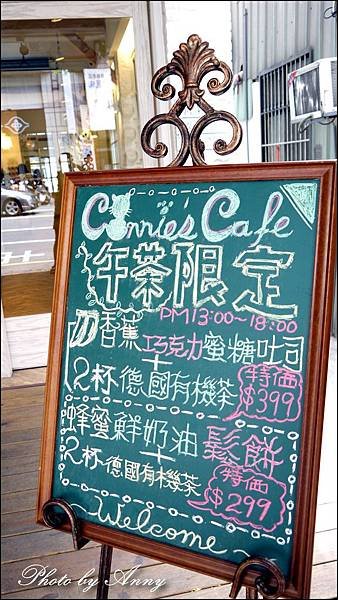 Connies Cafe
午茶限定
PM 13:00~18:00
香蕉巧克力蜜糖吐司
+
2杯德國有機茶
特價
$399
蜂蜜鮮奶油鬆餅
+
2杯德國有機茶
特價
$299
Welcome
Photo by Anny